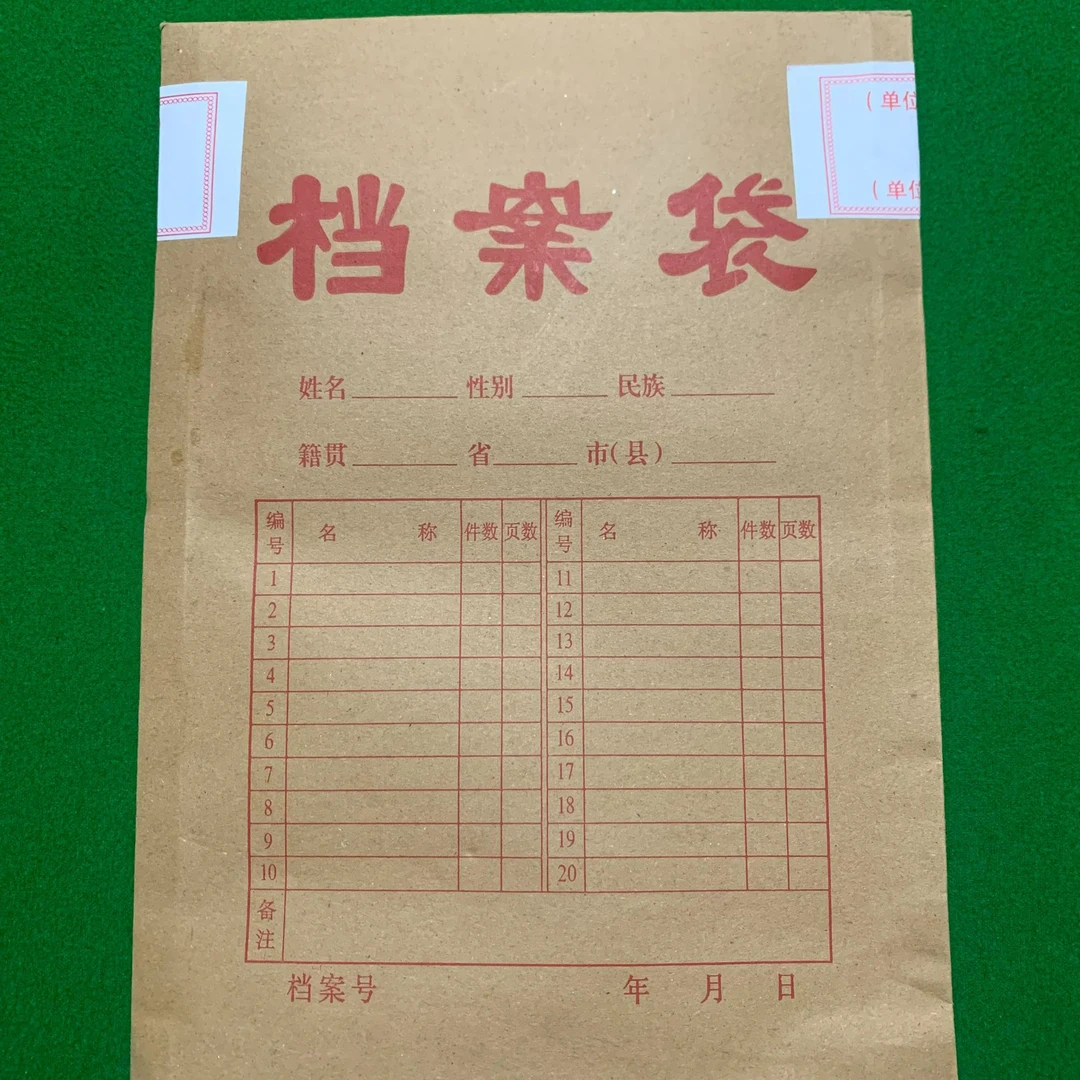 (单位
(单位
档案袋
姓名________ 性别______ 民族________
籍贯________ 省______ 市(县)________
编号 名 称 件数 页数 编号 名 称 件数 页数
1 11
2 12
3 13
4 14
5 15
6 16
7 17
8 18
9 19
10 20
备注
档案号 年 月 日